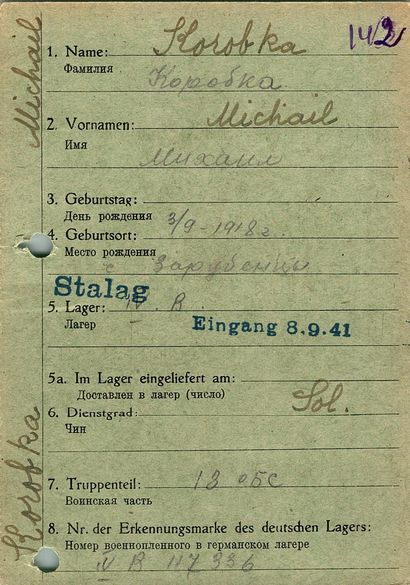 Michail
142
1. Name: Korobka
Фамилия Коробка
2. Vornamen: Michail
Имя
Михаил
3. Geburtstag:
День рождения 3/9-1918 г.
4. Geburtsort:
Место рождения
с Зарубенцы
Stalag
5. Lager: IV. B.
Лагер Eingang 8.9.41
5a. Im Lager eingeliefert am:
Доставлен в лагер (число)
6. Dienstgrad: Sol.
Чин
7. Truppenteil: 13 ОБС
Воинская часть
8. Nr. der Erkennungsmarke des deutschen Lagers:
Номер военнопленного в германском лагере
IV B 117336
Korobka